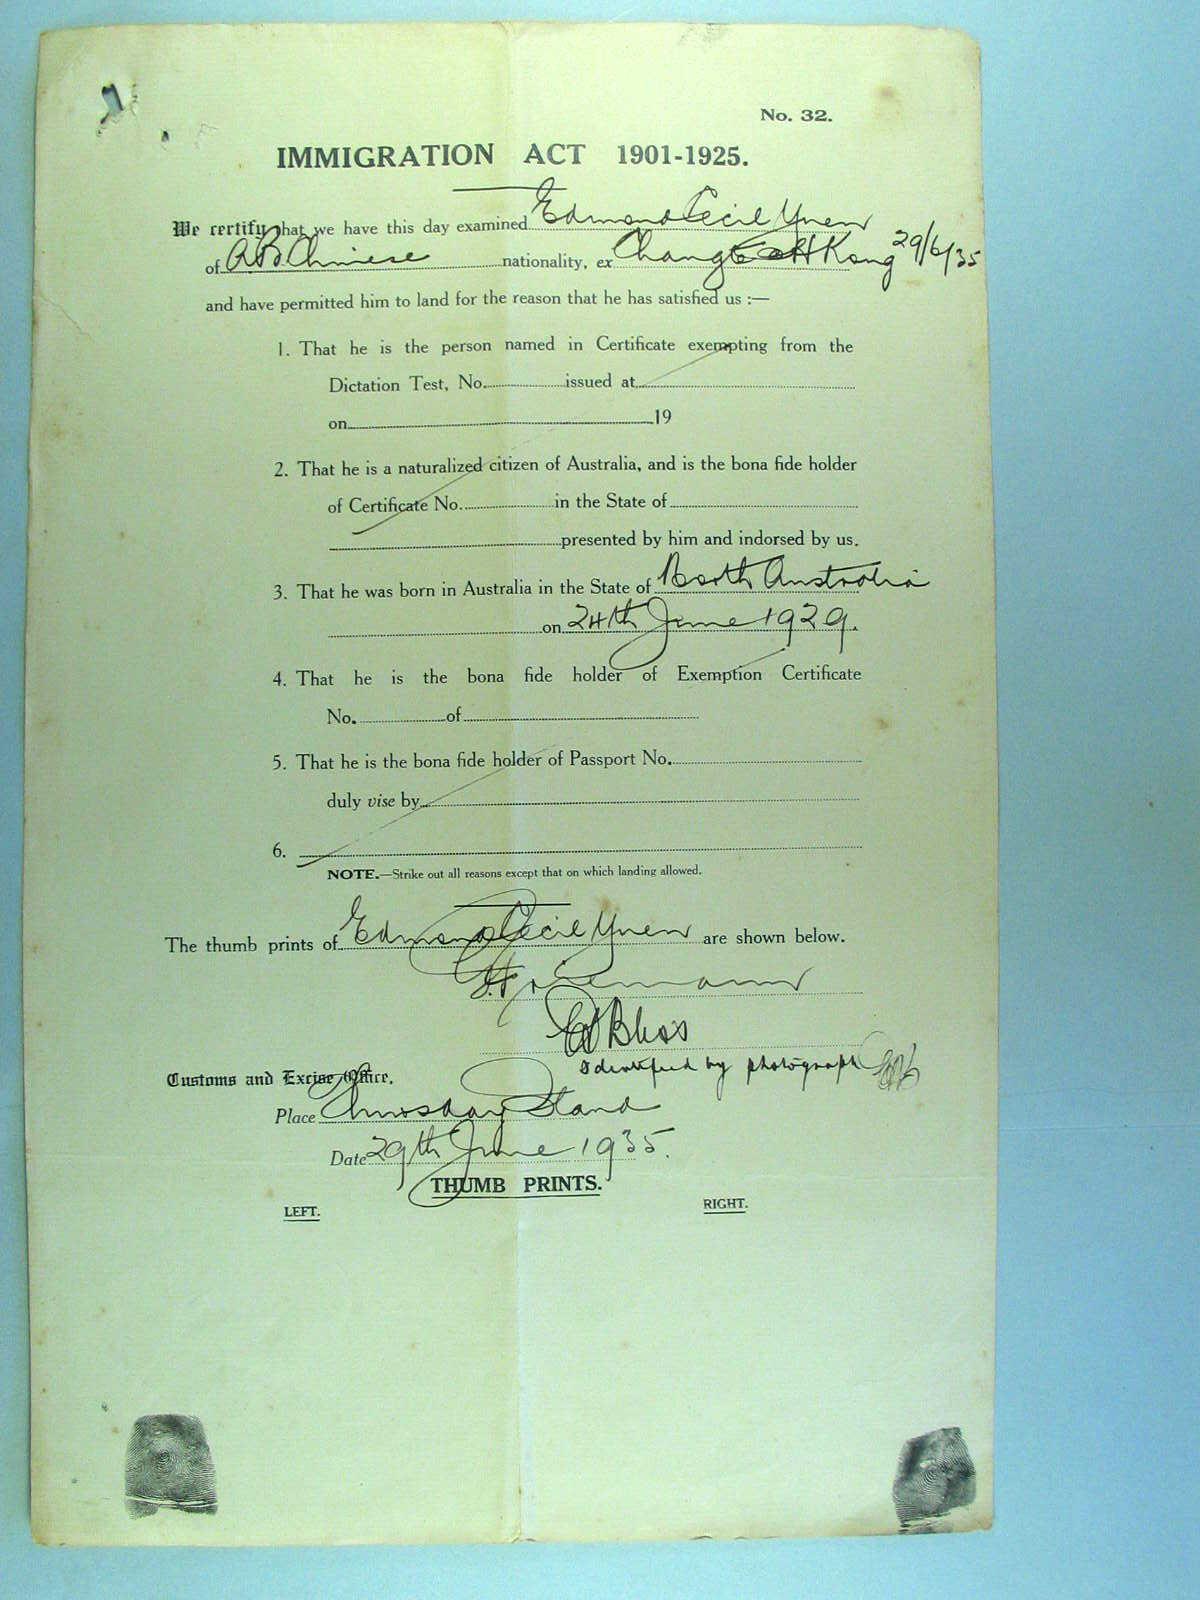 No. 32.
IMMIGRATION ACT 1901-1925.
We certify that we have this day examined Edmond Cecil Yuen
of A B Chinese nationality, ex Changte ex H Kong 29/6/35
and have permitted him to land for the reason that he has satisfied us :—
1. That he is the person named in Certificate exempting from the
Dictation Test, No. issued at
on 19
2. That he is a naturalized citizen of Australia, and is the bona fide holder
of Certificate No. in the State of
presented by him and indorsed by us.
3. That he was born in Australia in the State of North Australia
on 24th June 1929.
4. That he is the bona fide holder of Exemption Certificate
No. of
5. That he is the bona fide holder of Passport No.
duly vise by
6.
NOTE.—Strike out all reasons except that on which landing allowed.
The thumb prints of Edmond Cecil Yuen are shown below.
Identified by photograph
Customs and Excise Office.
Place Thursday Island
Date 29th June 1935.
THUMB PRINTS.
LEFT. RIGHT.